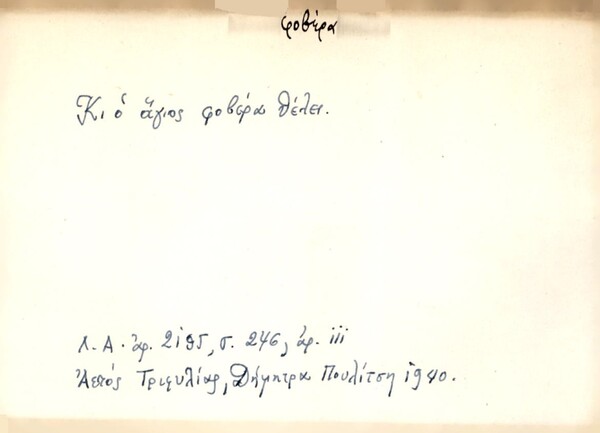 φοβέρα
Κι ὁ ἅγιος φοβέρα θέλει.
Λ.Α. ἀρ. 2195, σ. 246, ἀρ. iii
Ἀετός Τριφυλίας, Δήμητρα Πουλίτση 1940.